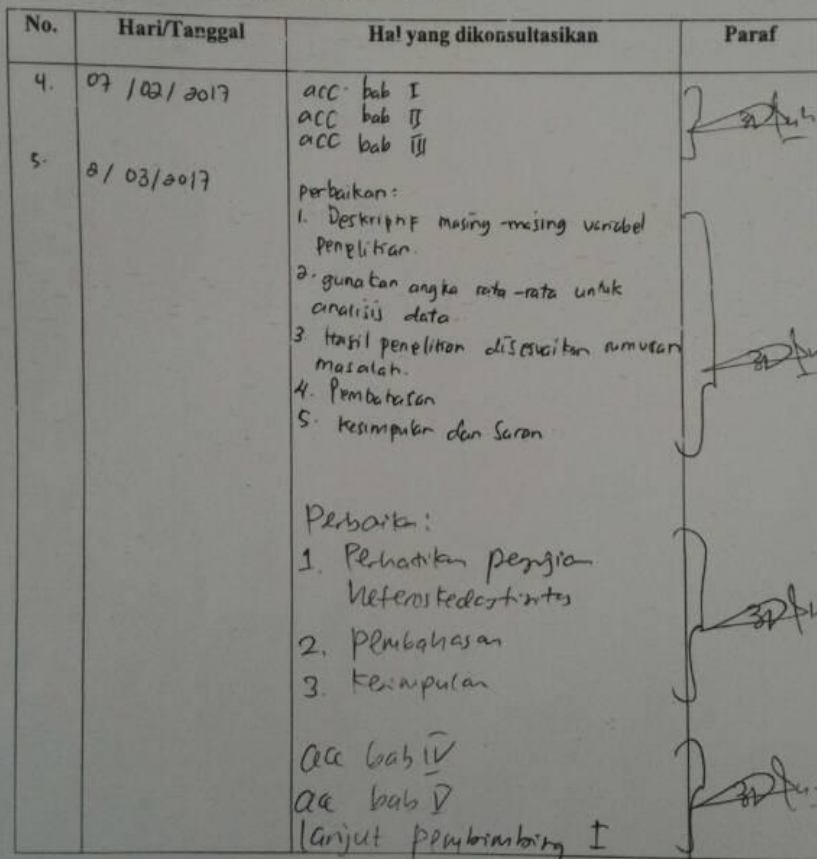 No. Hari/Tanggal Hal yang dikonsultasikan Paraf
4. 07 /02/ 2017 acc bab I
acc bab II
acc bab III
5. 2/ 03/2017
perbaikan:
1. Deskriptif masing-masing variabel
penelitian.
2. gunakan angka rata-rata untuk
analisis data
3 Hasil penelitian disesuaikan rumusan
masalah.
4. Pembahasan
5. kesimpulan dan Saran
Perbaikan:
1. Perhatikan pengujian
heteroskedastisitas
2. Pembahasan
3. Kesimpulan
acc bab IV
acc bab V
lanjut pembimbing I